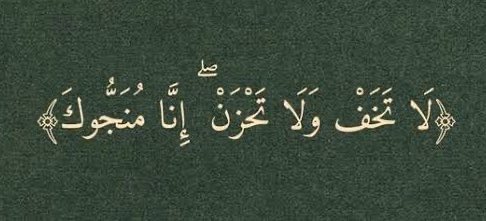 ﴿لَا تَخَفْ وَلَا تَحْزَنْ ۖ إِنَّا مُنَجُّوكَ﴾